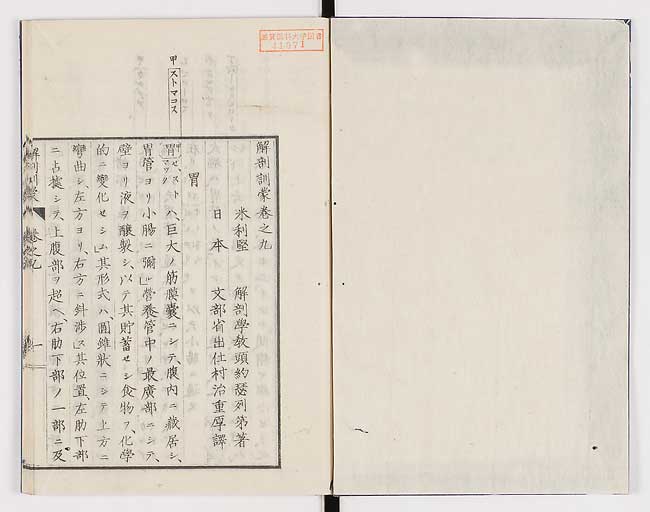 滋賀医科大学図書
41071
甲 ストマコス
解剖訓蒙巻之九
米利堅 解剖學教頭約瑟列第著
日本 文部省出仕村治重厚譯
胃
胃ハ、巨大ノ筋膜嚢ニシテ、腹内ニ蔵居シ、
胃管ヨリ小腸ニ彌ル営養管中ノ最廣部ニシテ、
壁ヨリ液ヲ醸製シ、以テ其貯蓄セシ食物ヲ、化學
的ニ變化セシム其形式ハ、圓錐狀ニシテ上方ニ
彎曲シ、左方ヨリ、右方ニ斜渉ス其位置、左肋下部
ニ占據シテ、上腹部ヲ超ヘ、右肋下部ノ一部ニ及
解剖訓蒙 巻之九 一